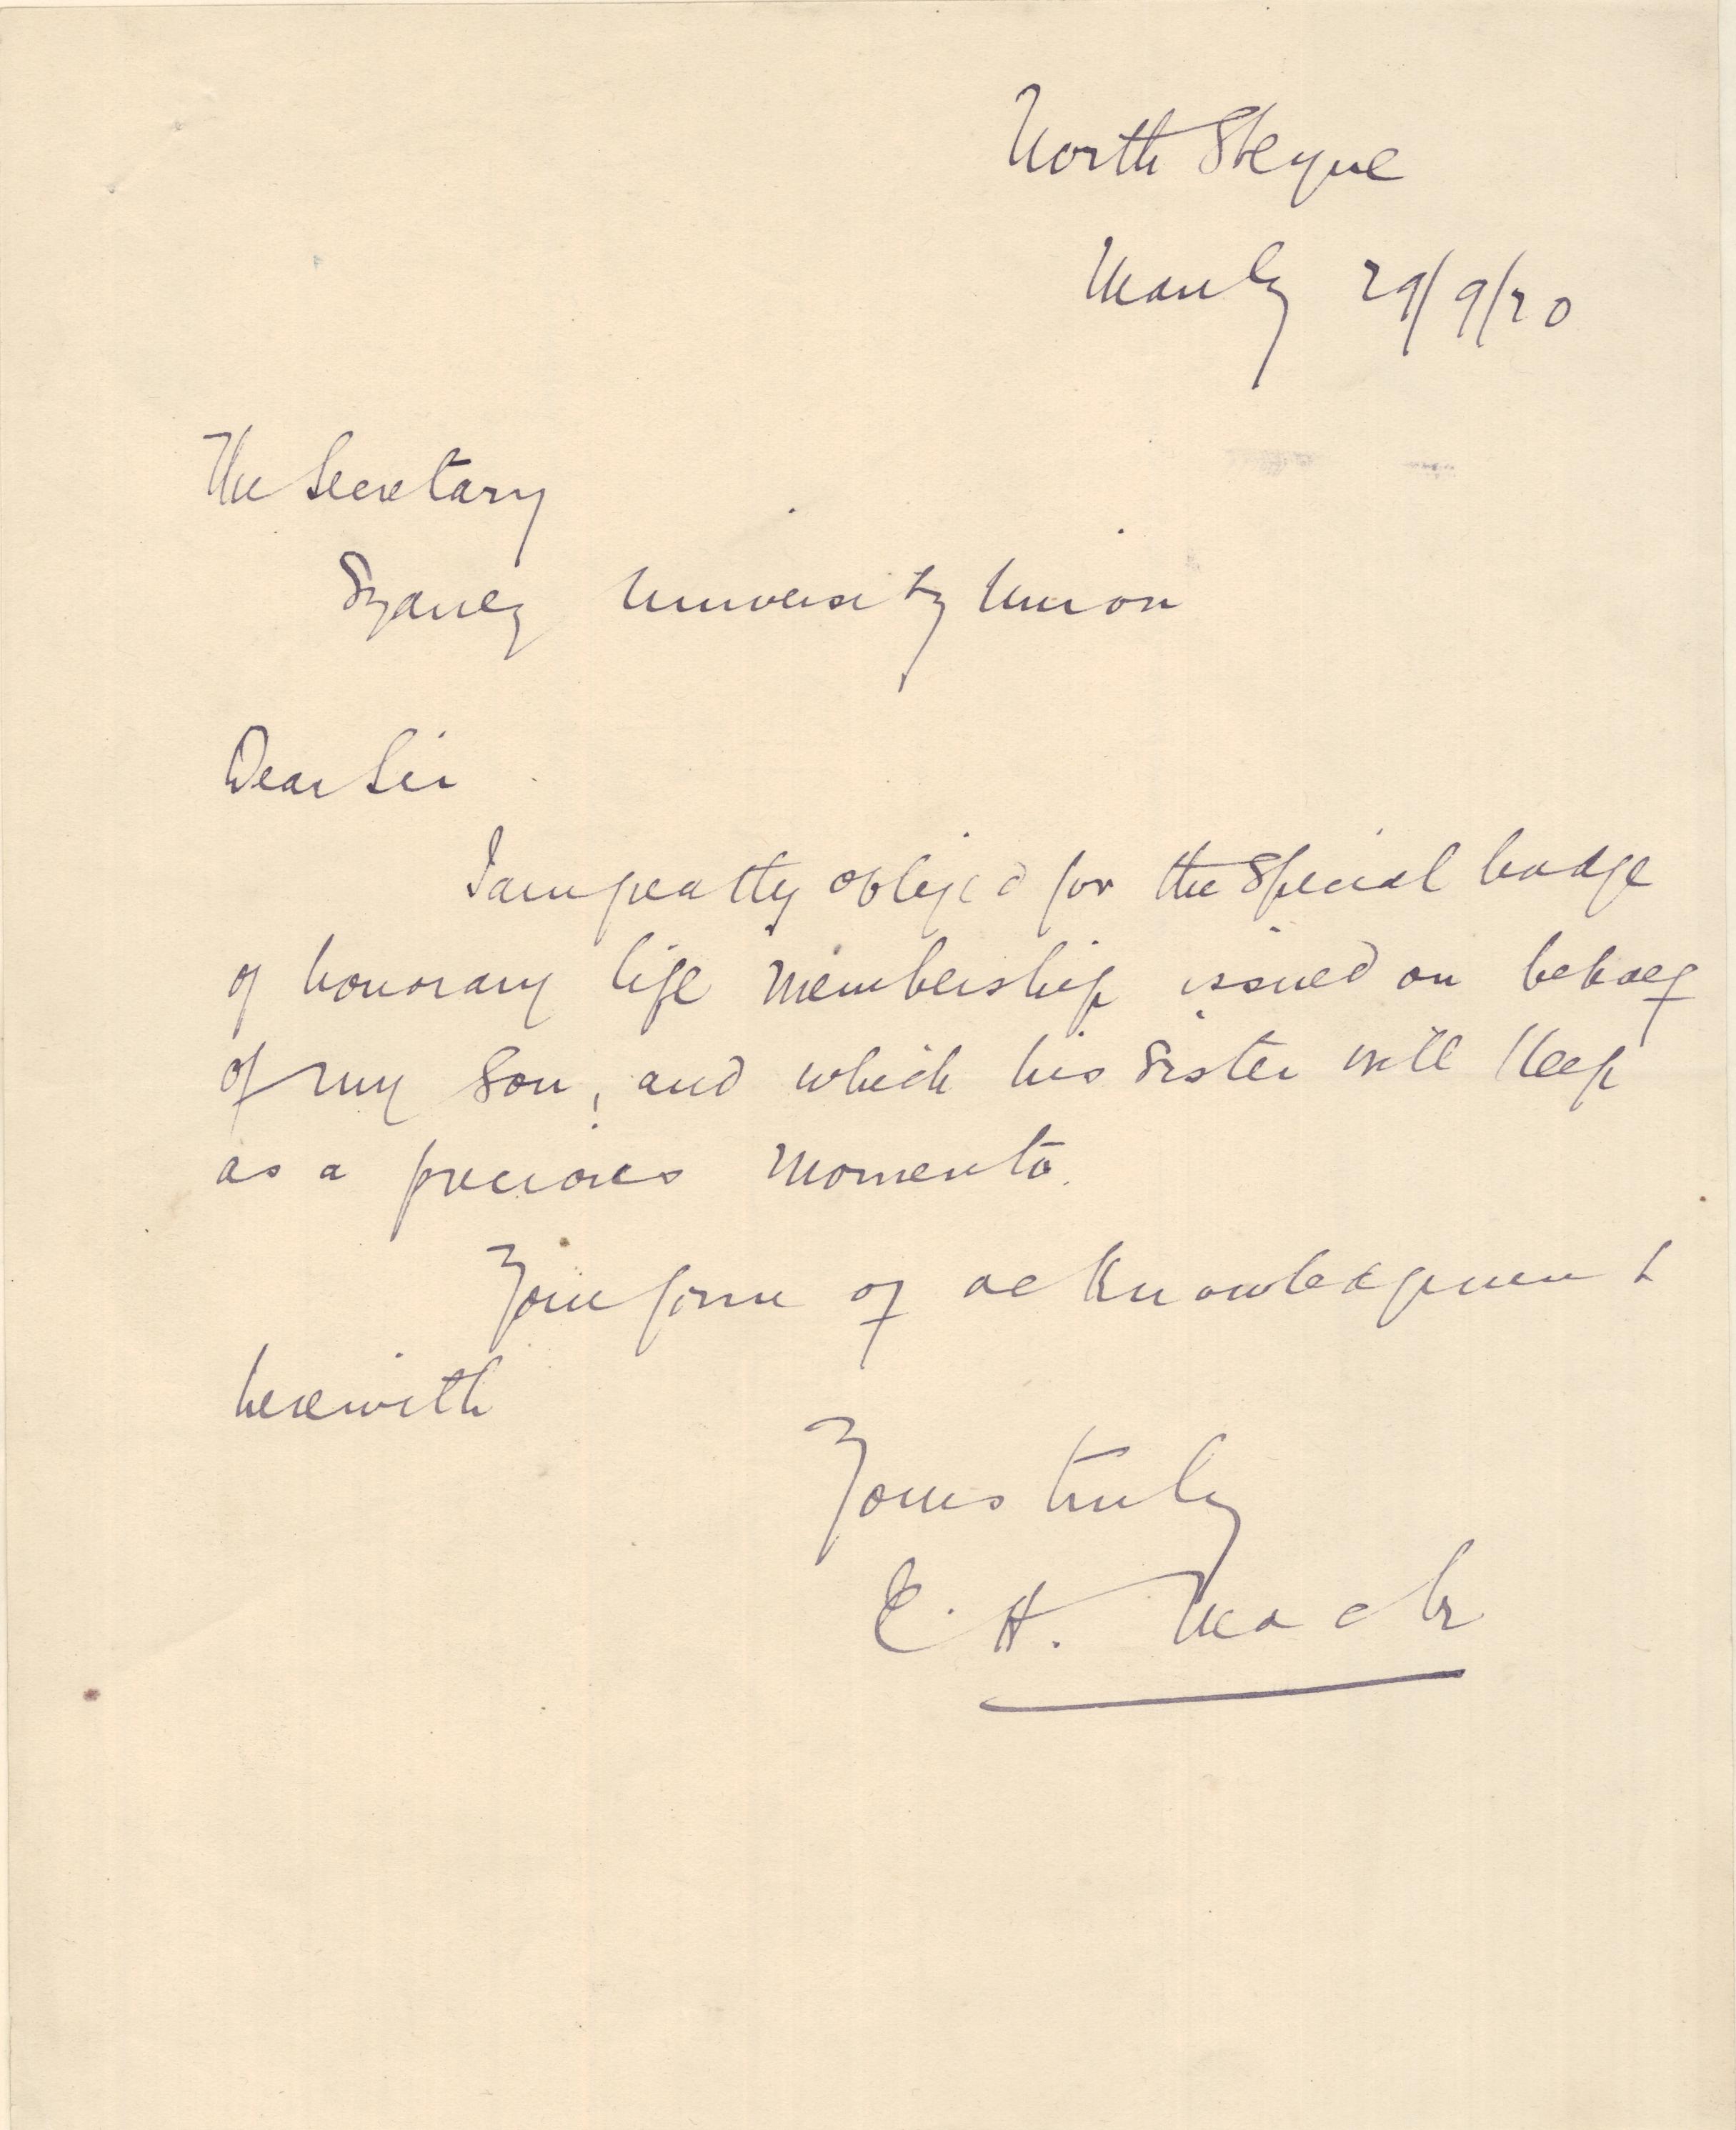 North Steyne
Manly 29/9/20
The Secretary
Sydney University Union
Dear Sir
I am greatly obliged for the special badge
of honorary life membership issued on behalf
of my son, and which his sister will keep
as a precious momento.
Your form of acknowledgment
herewith
Yours truly
E. H. Mack